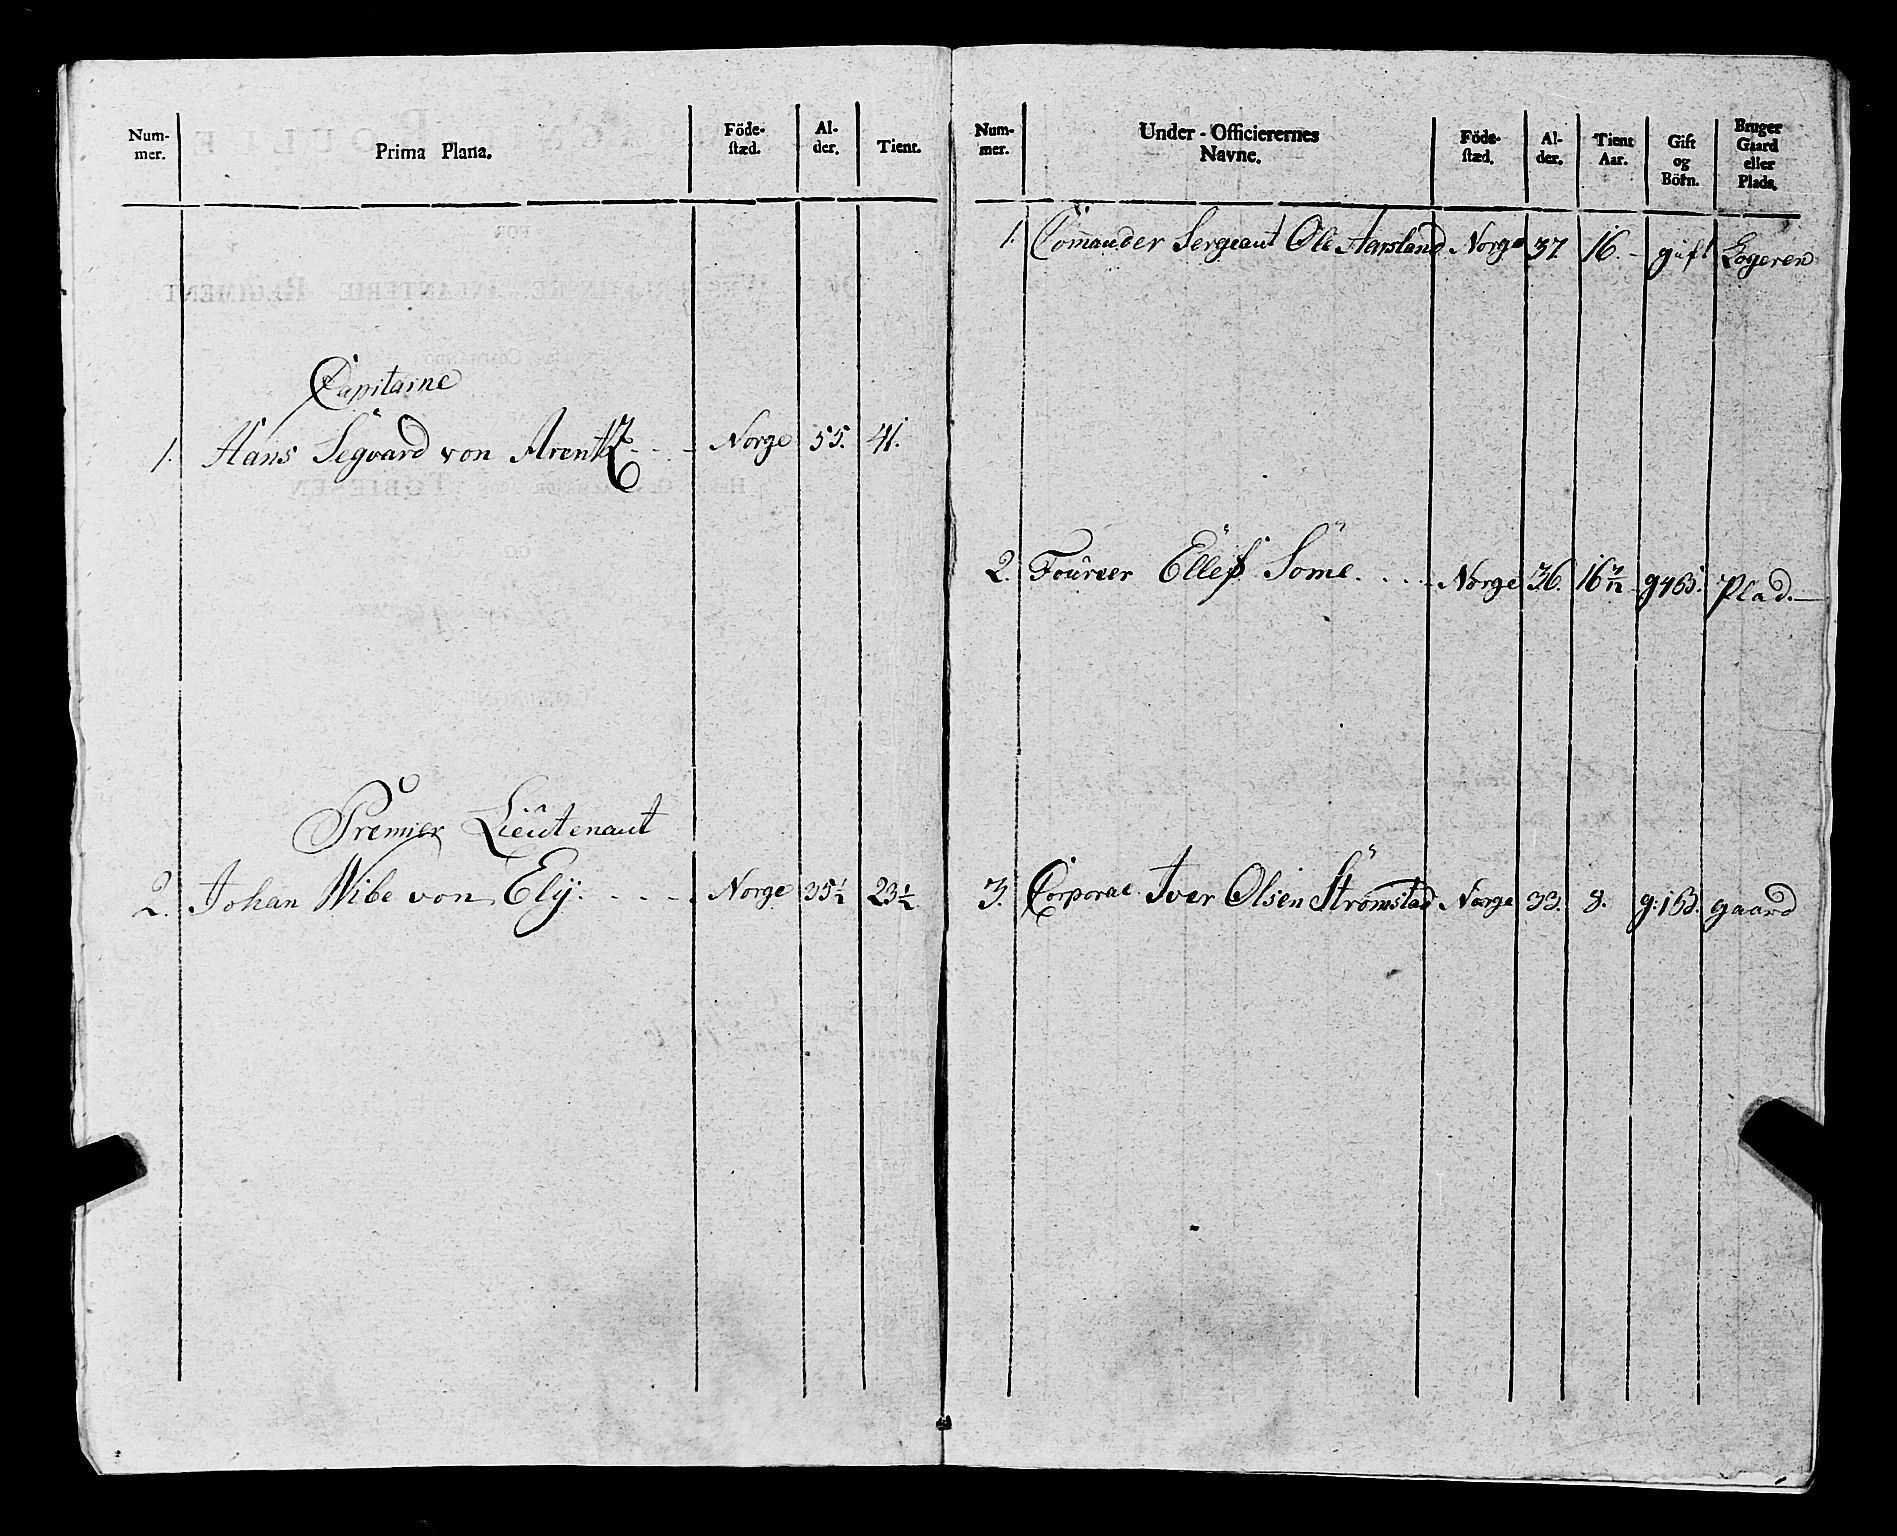 Num-
mer.
Prima Plana.
Föde-
stæd.
Al-
der.
Tient.
Capitaine
1. Hans Segvard von Arentz - - - Norge 55. 41.
Premier Lieutenant
2. Johan Wibe von Ely. - - - - Norge 35½ 23½
Num-
mer.
Under-Officierernes
Navne.
Föde-
stæd.
Al-
der.
Tient
Aar.
Gift
og
Börn.
Bruger
Gaard
eller
Plads.
1. Comander Sergeant Ole Aarsland Norge 37 16. - gift Logeren
2. Foureer Ellef Söme. - - - - Norge 36. 16 g 4 B. Plad. —
3. Corporal Iver Olsen Strömstad Norge 33. 8. g: 1 B. gaard